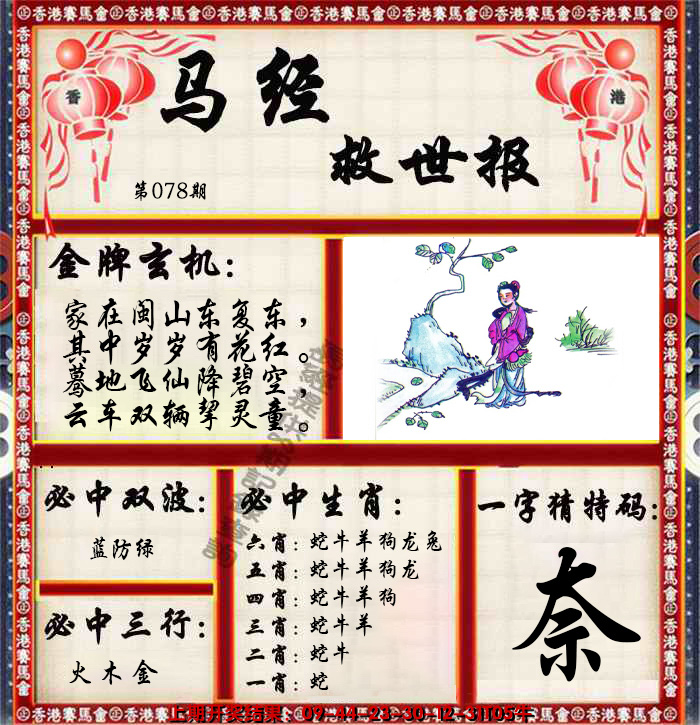 香港賽馬會
香 港
马经
救世报
第078期
金牌玄机：
家在闽山东复东，
其中岁岁有花红。
蓦地飞仙降碧空，
云车双辆挈灵童。
必中双波：
蓝防绿
必中三行：
火木金
必中生肖：
六肖：蛇牛羊狗龙兔
五肖：蛇牛羊狗龙
四肖：蛇牛羊狗
三肖：蛇牛羊
二肖：蛇牛
一肖：蛇
一字猜特码：
奈
上期开奖结果：09-44-23-30-12-31T05牛